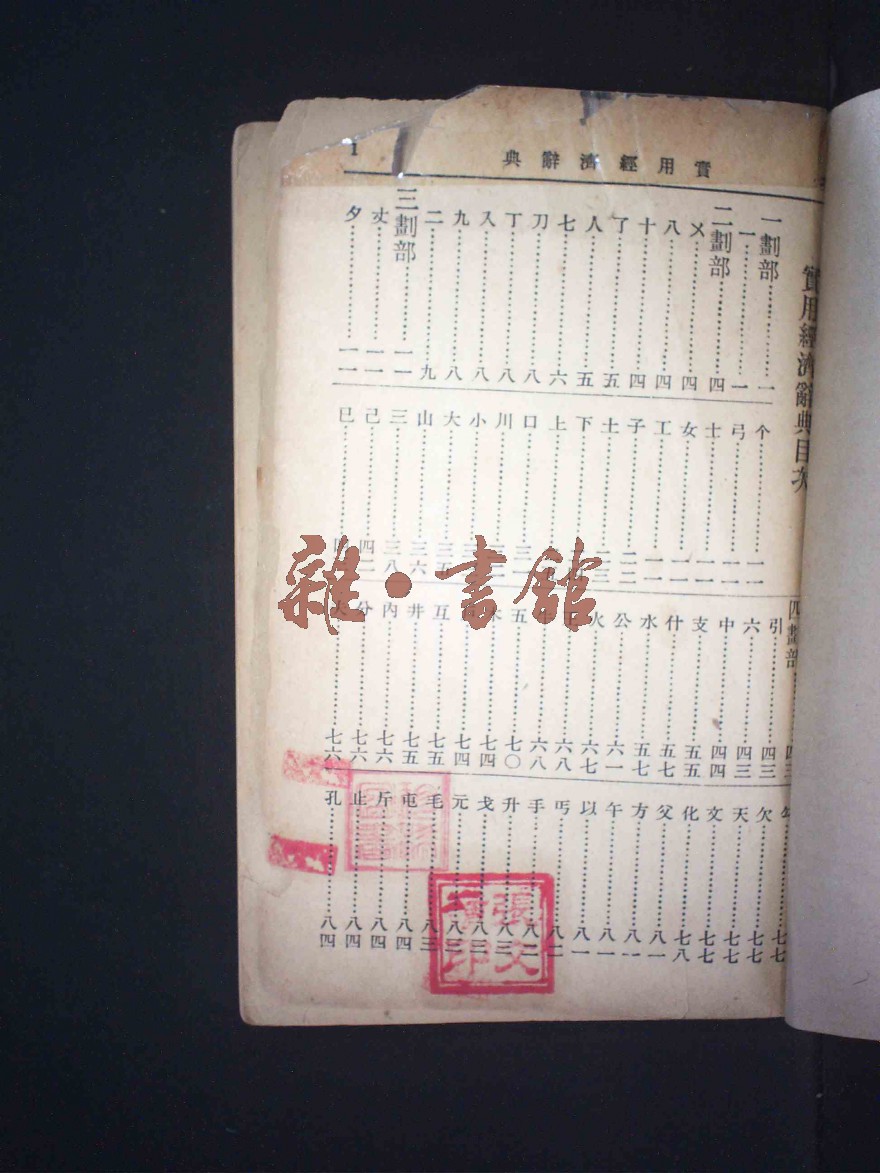 實用經濟辭典
1
實用經濟辭典目次
一劃部……一
一……一
二劃部……四
乂……四
八……四
十……四
了……五
人……五
七……六
刀……八
丁……八
入……八
九……八
二……九
三劃部……一一
丈……一一
夕……一二
个……一二
弓……一二
士……一二
女……一二
工……一二
子……二三
土……二三
下
上
口
川
小
大
山……三六
三……三八
己
已
四劃部……四三
引……四三
六……四三
中……四四
支……五五
什……五七
水……五七
公……六一
火……六七
六八
六八
五……七〇
木……七四
七四
互……七五
井……七五
內……七六
分……七六
七六
七七
欠……七七
天……七七
文……七七
化……七八
父……八一
方……八一
午……八一
以……八一
丐……八二
手……八二
升……八二
戈……八三
元……八三
毛……八三
屯……八四
斤……八四
止……八四
孔……八四
雜·書館
張文
印